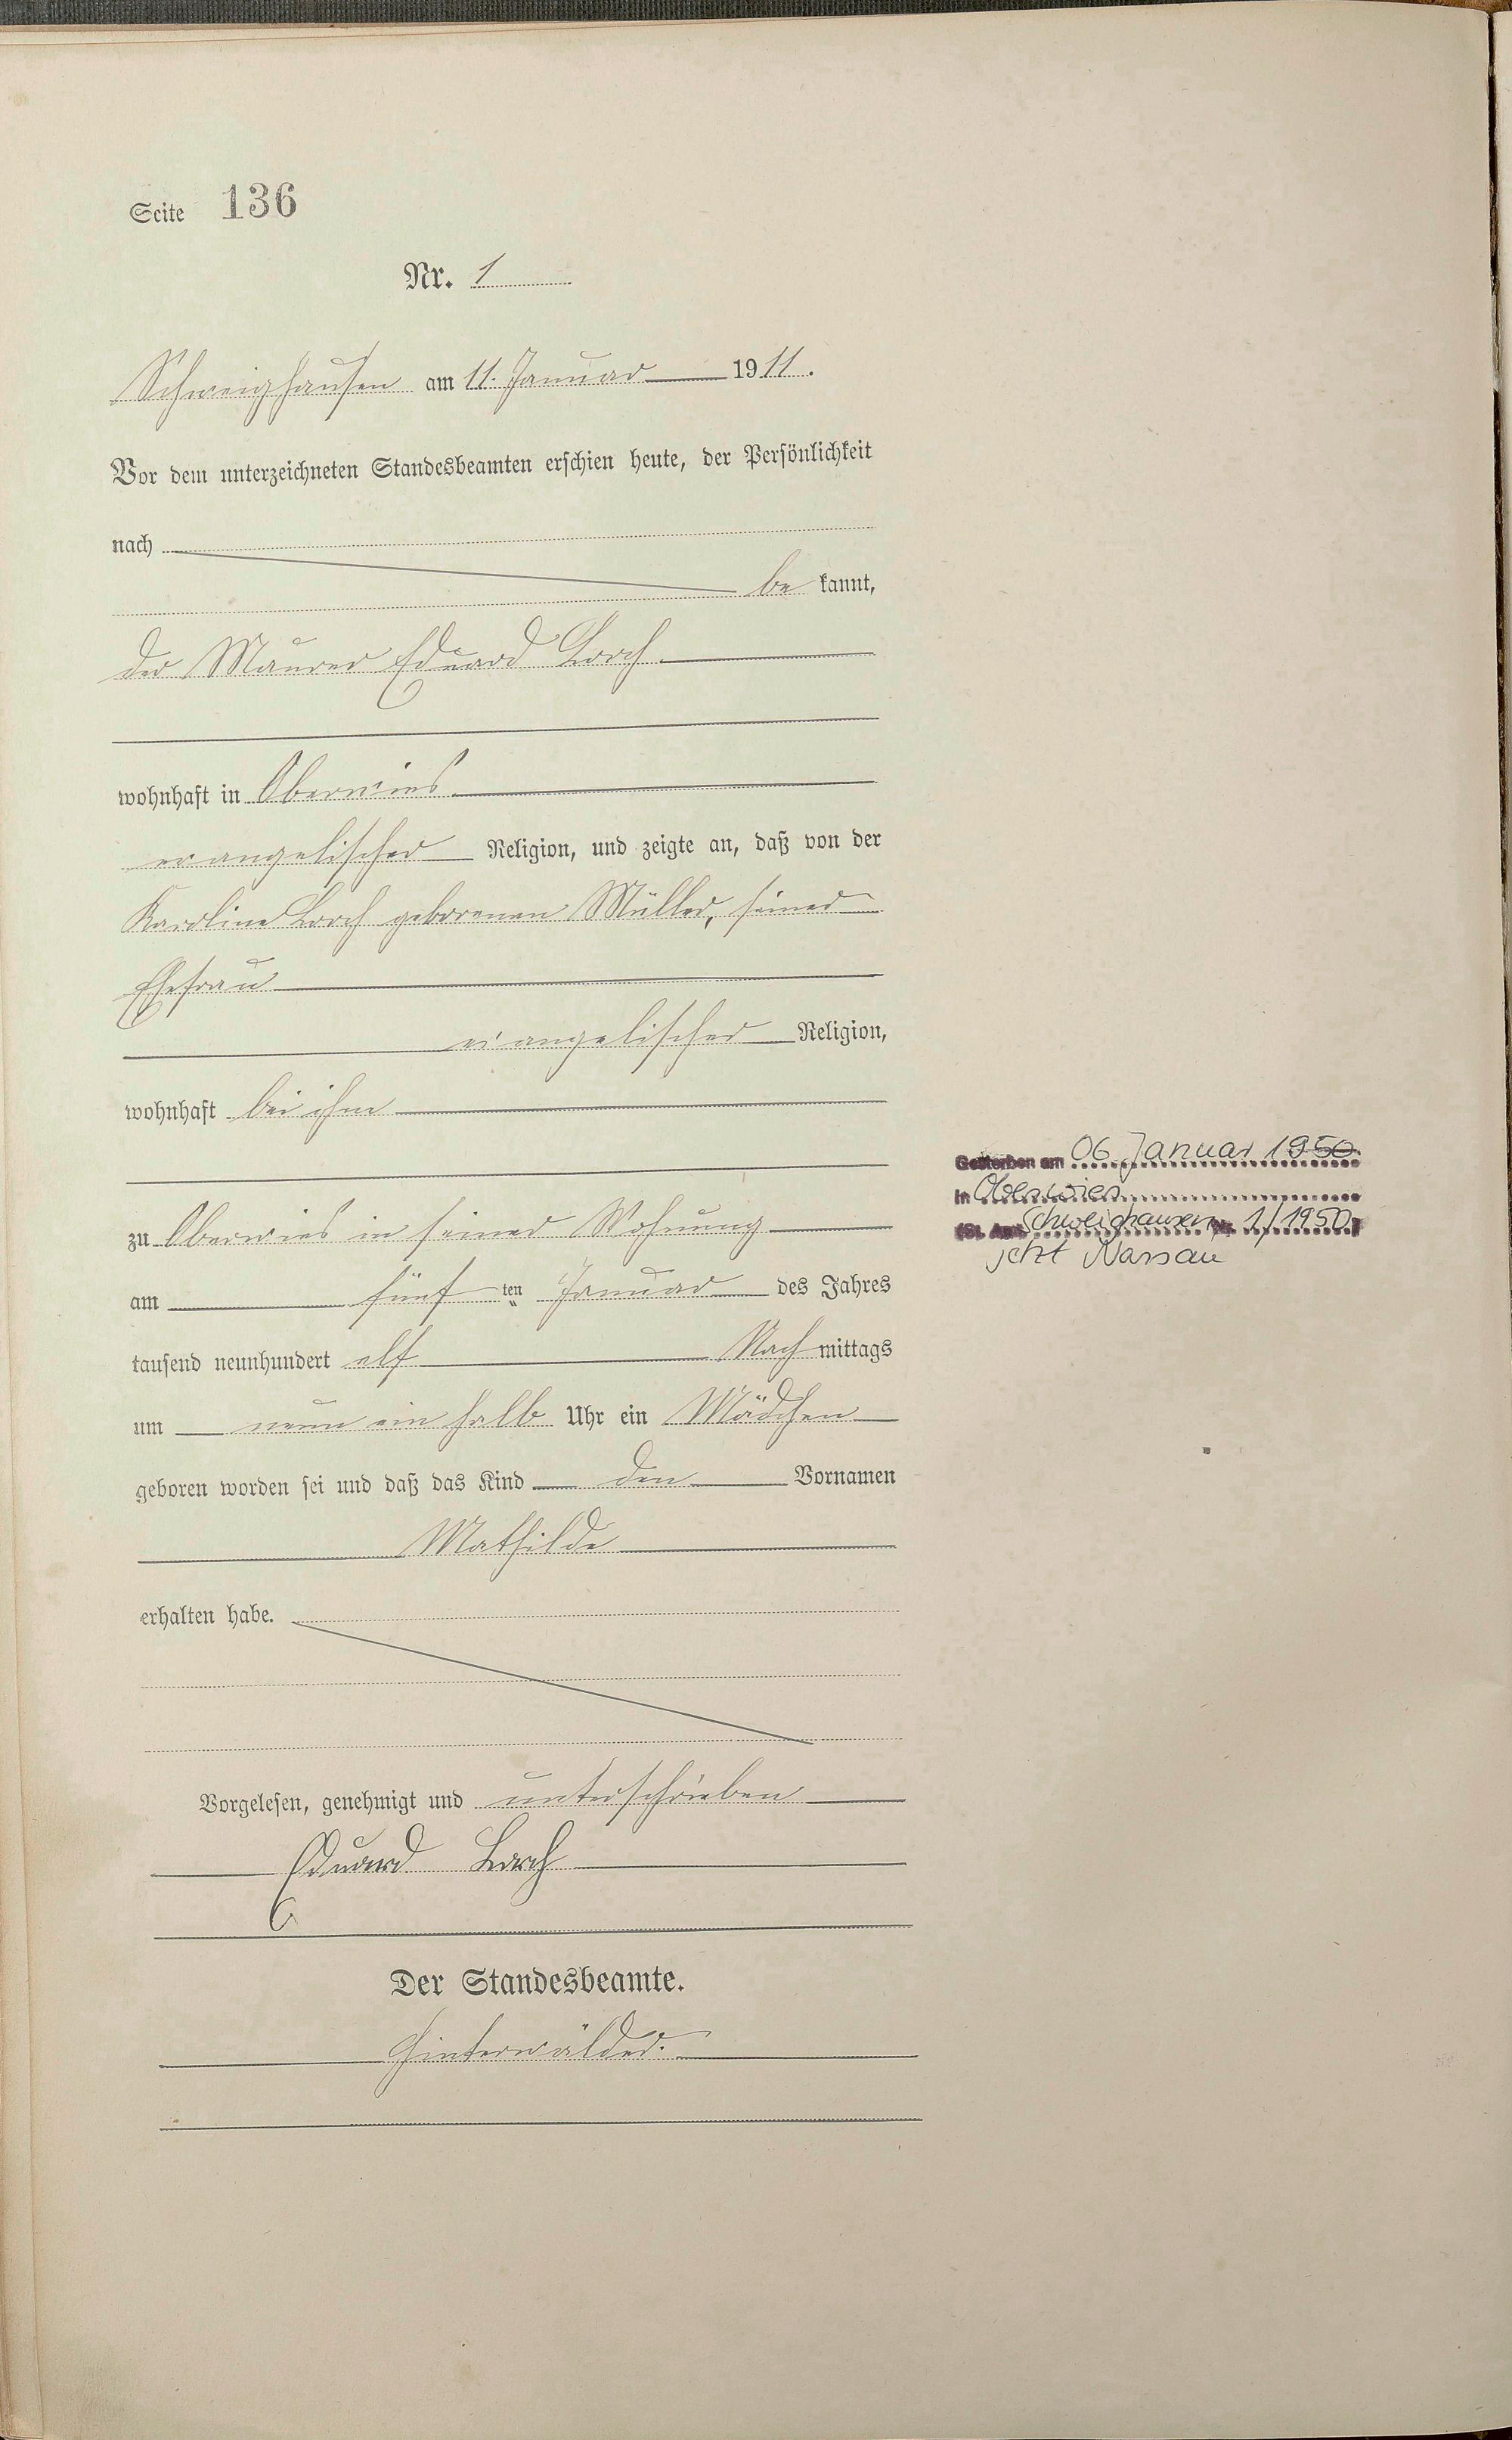 Seite 136
Nr. 1
Schweighausen am 11. Januar 1911.
Vor dem unterzeichneten Standesbeamten erschien heute, der Persönlichkeit
nach
be kannt,
der Maurer Eduard Lorch
wohnhaft in Oberwies
evangelischer Religion, und zeigte an, daß von der
Karoline Lorch geborenen Müller, seiner
Ehefrau
evangelischer Religion,
wohnhaft bei ihm
zu Oberwies in seiner Wohnung
am fünf ten Januar des Jahres
tausend neunhundert elf Nach mittags
um neun ein halb Uhr ein Mädchen
geboren worden sei und daß das Kind den Vornamen
Mathilde
erhalten habe.
Vorgelesen, genehmigt und unterschrieben
Eduard Lorch
Der Standesbeamte.
Hinterwälder.
Gestorben am 06. Januar 1950
in Oberwies
(St. Amt Schweighausen Nr. 1/1950)
jetzt Nassau